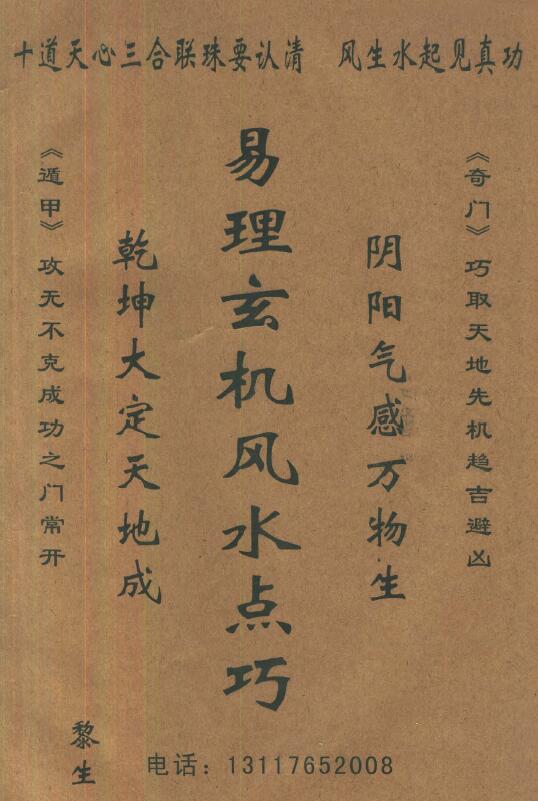 十道天心三合联珠要认清　风生水起见真功
《奇门》巧取天地先机趋吉避凶
阴阳气感万物生
易理玄机风水点巧
乾坤大定天地成
《遁甲》攻无不克成功之门常开
黎生
电话：13117652008